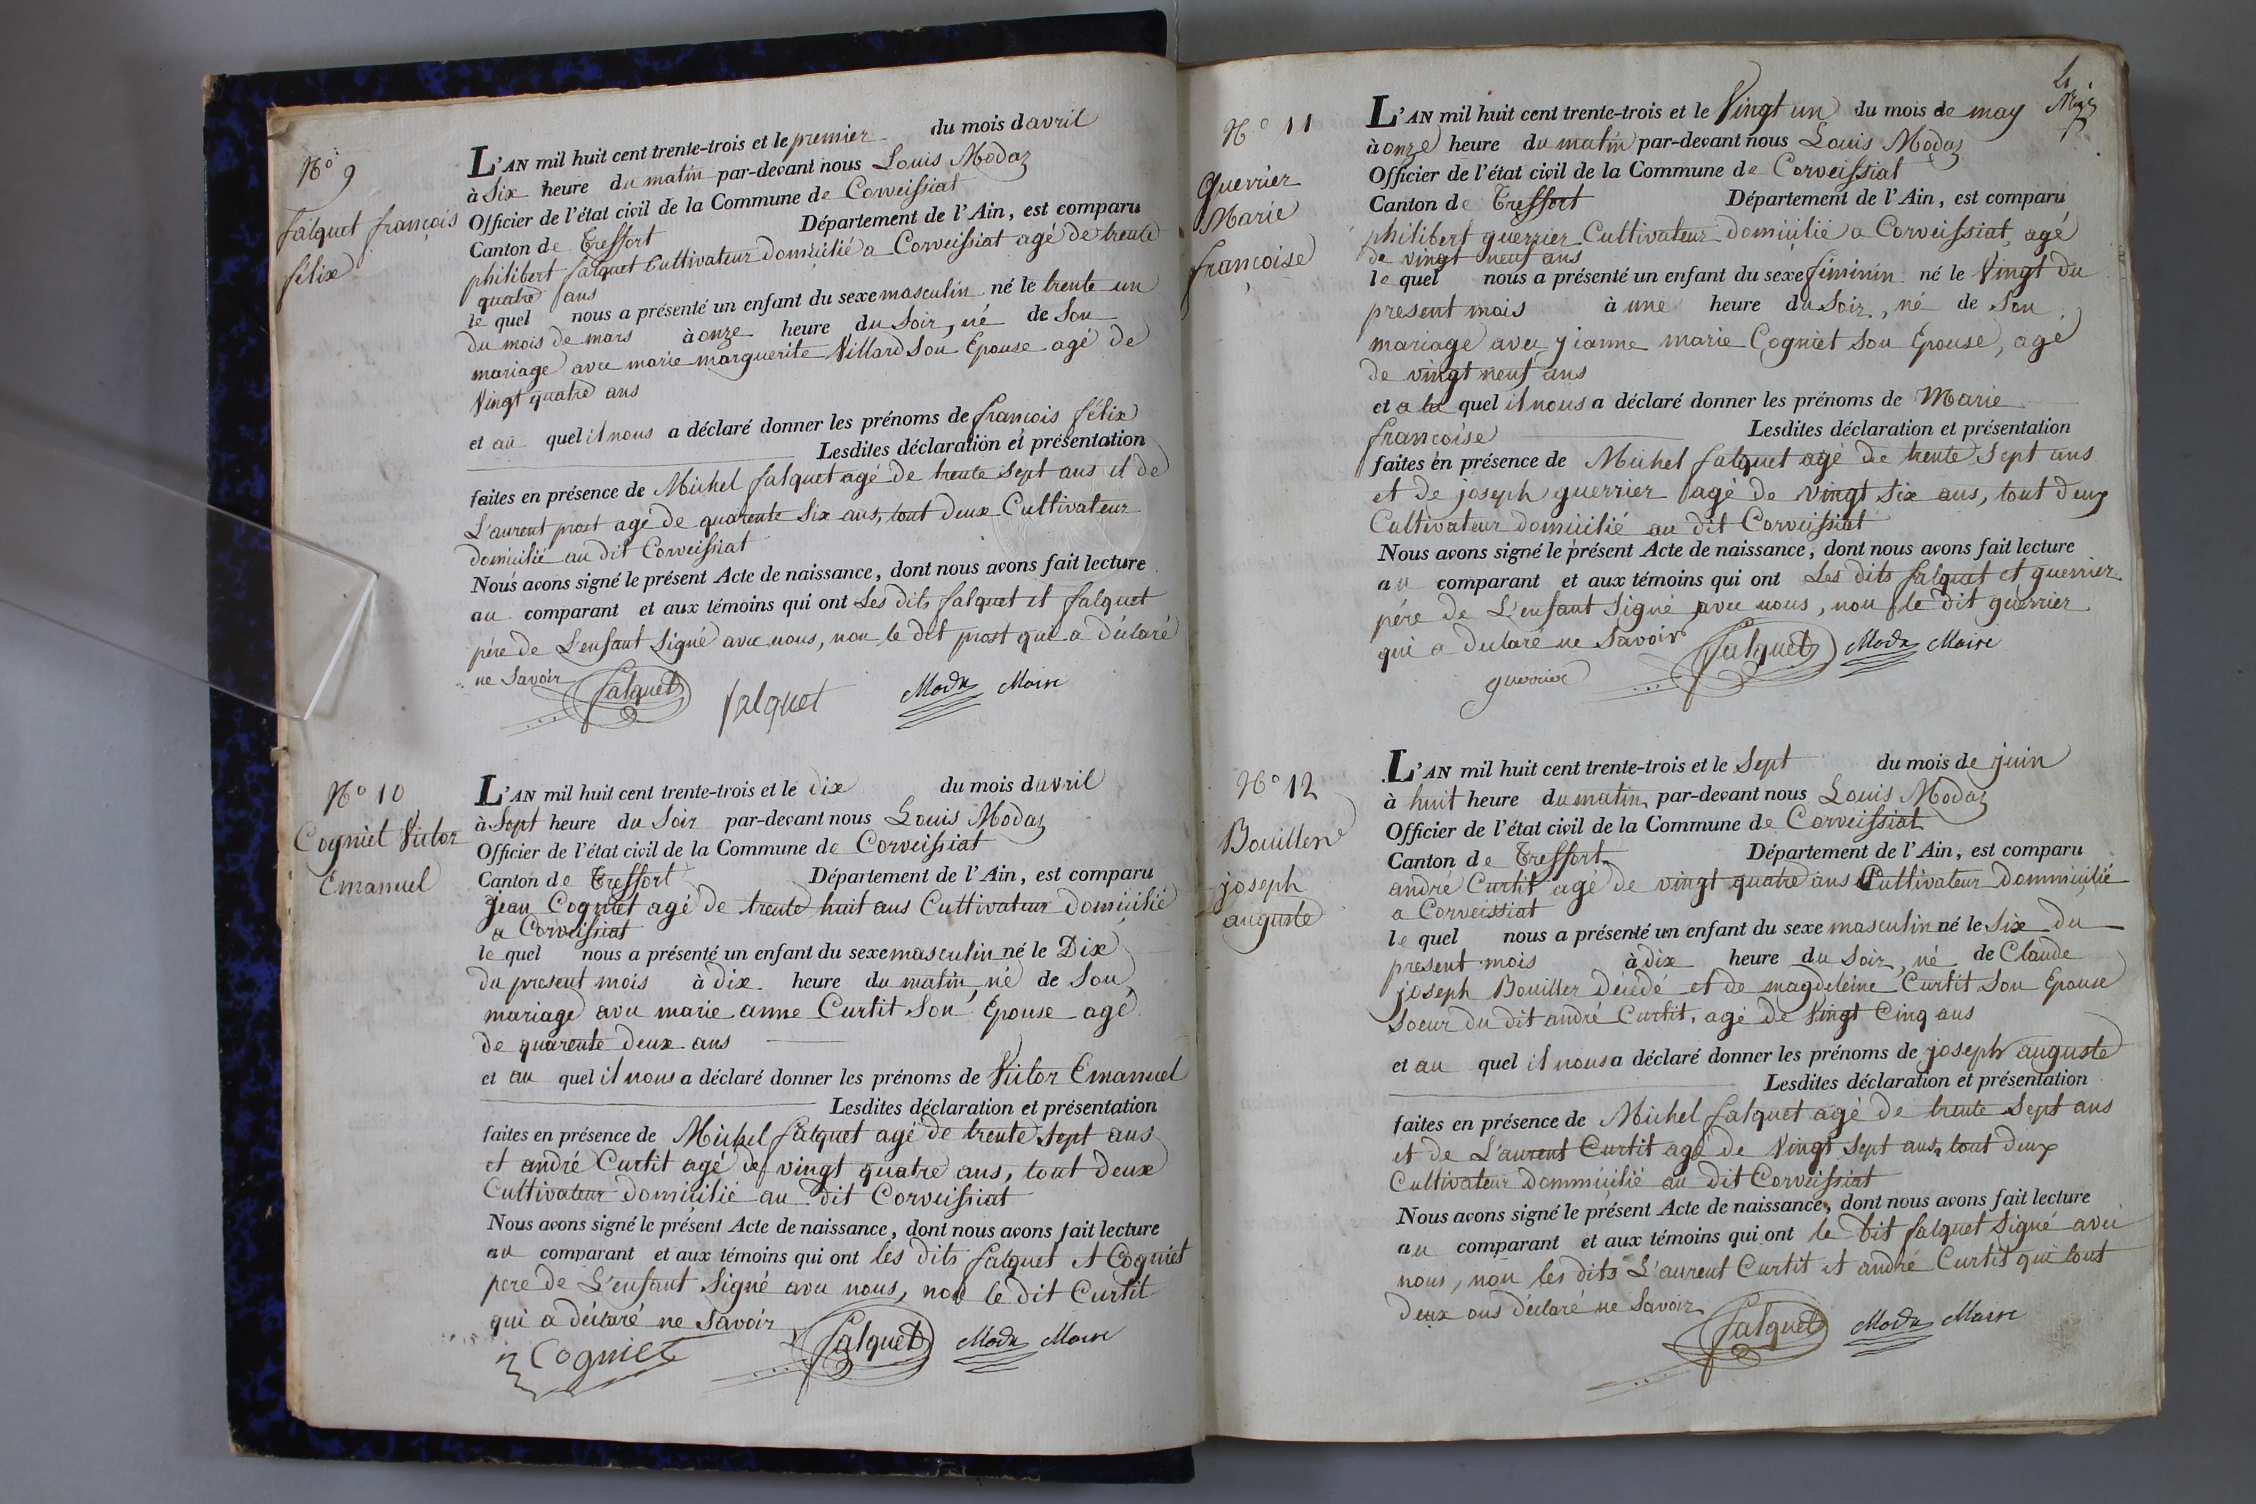 N° 9
falquet françois
félix
L'AN mil huit cent trente-trois et le premier du mois d avril
à Six heure du matin par-devant nous Louis Modas
Officier de l'état civil de la Commune de Corveissiat
Canton de Treffort Département de l'Ain, est comparu
philibert falquet Cultivateur domicilié a Corveissiat agé de trente
quatre ans
le quel nous a présenté un enfant du sexe masculin né le trente un
du mois de mars à onze heure du Soir, né de Son
mariage avec marie marguerite Villard Son Epouse agé de
Vingt quatre ans
et au quel il nous a déclaré donner les prénoms de françois félix
Lesdites déclaration et présentation
faites en présence de Michel falquet agé de trente Sept ans et de
L'aurent prost agé de quarente Six ans, tout deux Cultivateur
domicilié au dit Corveissiat
Nous avons signé le présent Acte de naissance, dont nous avons fait lecture
au comparant et aux témoins qui ont Les dits falquet et falquet
père de L'enfant Signé avec nous, non le dit prost qui a déclaré
ne Savoir
falquet falquet Modas Maire
N° 10
Cogniet Victor
Emanuel
L'AN mil huit cent trente-trois et le dix du mois d avril
à Sept heure du Soir par-devant nous Louis Modas
Officier de l'état civil de la Commune de Corveissiat
Canton de Treffort Département de l'Ain, est comparu
Jean Cogniet agé de trente huit ans Cultivateur domicilié
a Corveissiat
le quel nous a présenté un enfant du sexe masculin né le Dix
du present mois à dix heure du matin, né de Son
mariage avec marie anne Curtit Son Epouse agé
de quarente deux ans
et au quel il nous a déclaré donner les prénoms de Victor Emanuel
Lesdites déclaration et présentation
faites en présence de Michel falquet agé de trente Sept ans
et andré Curtit agé de vingt quatre ans, tout deux
Cultivateur domicilié au dit Corveissiat
Nous avons signé le présent Acte de naissance, dont nous avons fait lecture
au comparant et aux témoins qui ont les dits falquet et Cogniet
pere de L'enfant Signé avec nous, non le dit Curtit
qui a déclaré ne Savoir
Cogniet falquet Modas Maire
N° 11
Guerrier
Marie
françoise
L'AN mil huit cent trente-trois et le Vingt un du mois de may
à onze heure du matin par-devant nous Louis Modas
Officier de l'état civil de la Commune de Corveissiat
Canton de Treffort Département de l'Ain, est comparu
philibert guerrier Cultivateur domicilié a Corveissiat agé
de vingt neuf ans
le quel nous a présenté un enfant du sexe féminin né le Vingt du
present mois à une heure du Soir, né de Son
mariage avec jianne marie Cogniet Son Epouse, agé
de vingt neuf ans
et a la quel il nous a déclaré donner les prénoms de Marie
francoise Lesdites déclaration et présentation
faites en présence de Michel falquet agé de trente Sept ans
et de joseph guerrier agé de vingt Six ans, tout deux
Cultivateur domicilié au dit Corveissiat
Nous avons signé le présent Acte de naissance, dont nous avons fait lecture
au comparant et aux témoins qui ont Les dits falquet et guerrier
père de L'enfant Signé avec nous, non le dit guerrier
qui a declaré ne Savoir
guerrier falquet Modas Maire
N° 12
Bouiller
joseph
auguste
L'AN mil huit cent trente-trois et le Sept du mois de juin
à huit heure du matin par-devant nous Louis Modas
Officier de l'état civil de la Commune de Corveissiat
Canton de Treffort Département de l'Ain, est comparu
andré Curtit agé de vingt quatre ans Cultivateur dommicilié
a Corveissiat
le quel nous a présenté un enfant du sexe masculin né le Six du
present mois à dix heure du Soir, né de Claude
joseph Bouiller décédé et de magdeleine Curtit Son Epouse
Soeur du dit andré Curtit, agé de Vingt Cinq ans
et au quel il nous a déclaré donner les prénoms de joseph auguste
Lesdites déclaration et présentation
faites en présence de Michel falquet agé de trente Sept ans
et de L'aurent Curtit agé de Vingt Sept ans, tout deux
Cultivateur dommicilié au dit Corveissiat
Nous avons signé le présent Acte de naissance, dont nous avons fait lecture
au comparant et aux témoins qui ont le dit falquet Signé avec
nous, non les dits L'aurent Curtit et andré Curtit qui tout
deux ons déclaré ne Savoir
falquet Modas Maire